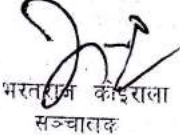 भरतराज कोइराला
सञ्चालक